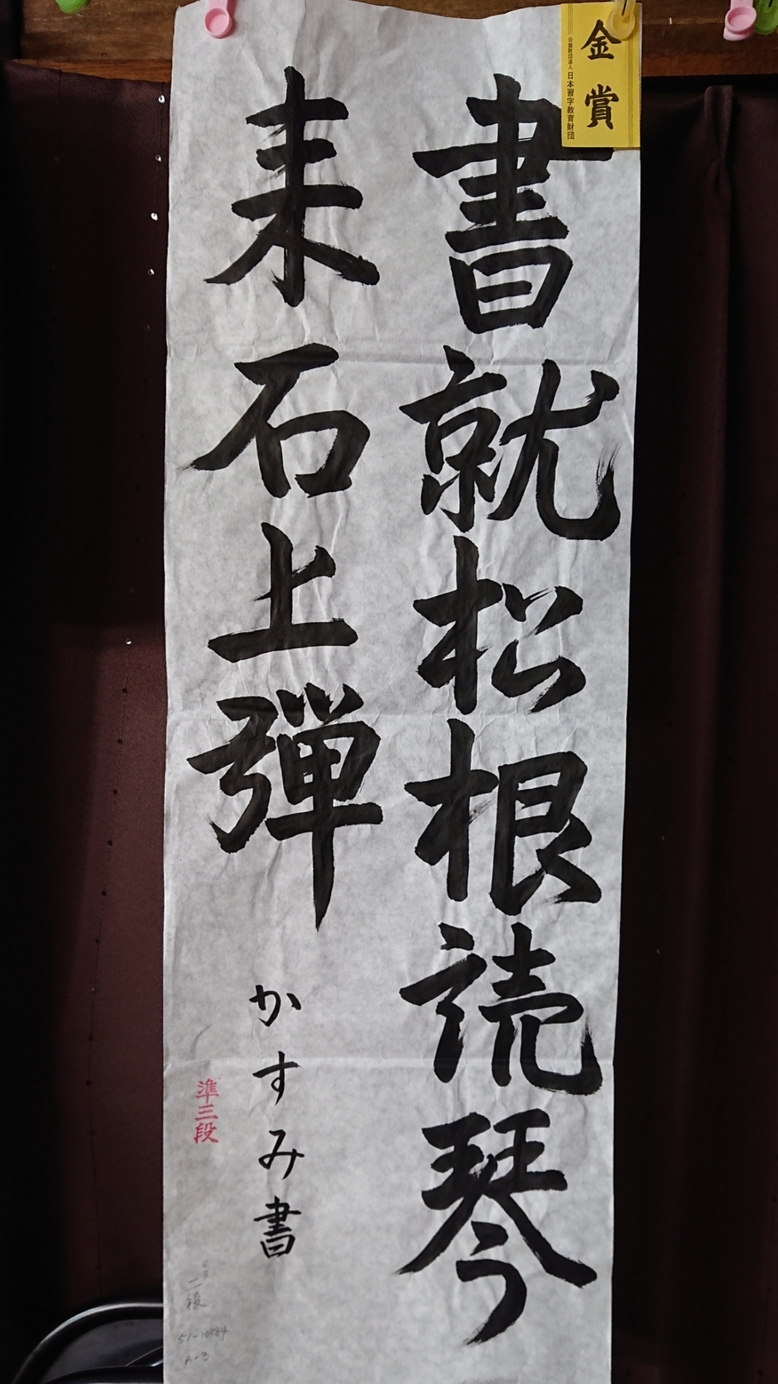 金賞
公益財団法人 日本習字教育財団
書就松根読琴
来石上弾
かすみ書
準三段